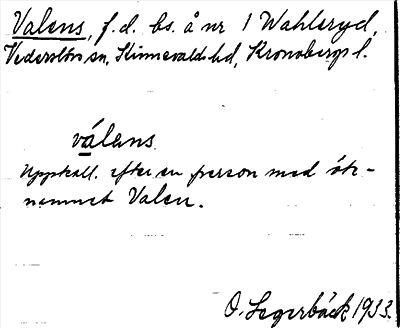 Valens, f.d. bs. å nr 1 Wahlsryd,
Vederslöv sn, Kinnevalds hd, Kronobergs l.
válens.
Uppkall. efter en person med ök-
namnet Valen.
O. Segerbäck 1933.